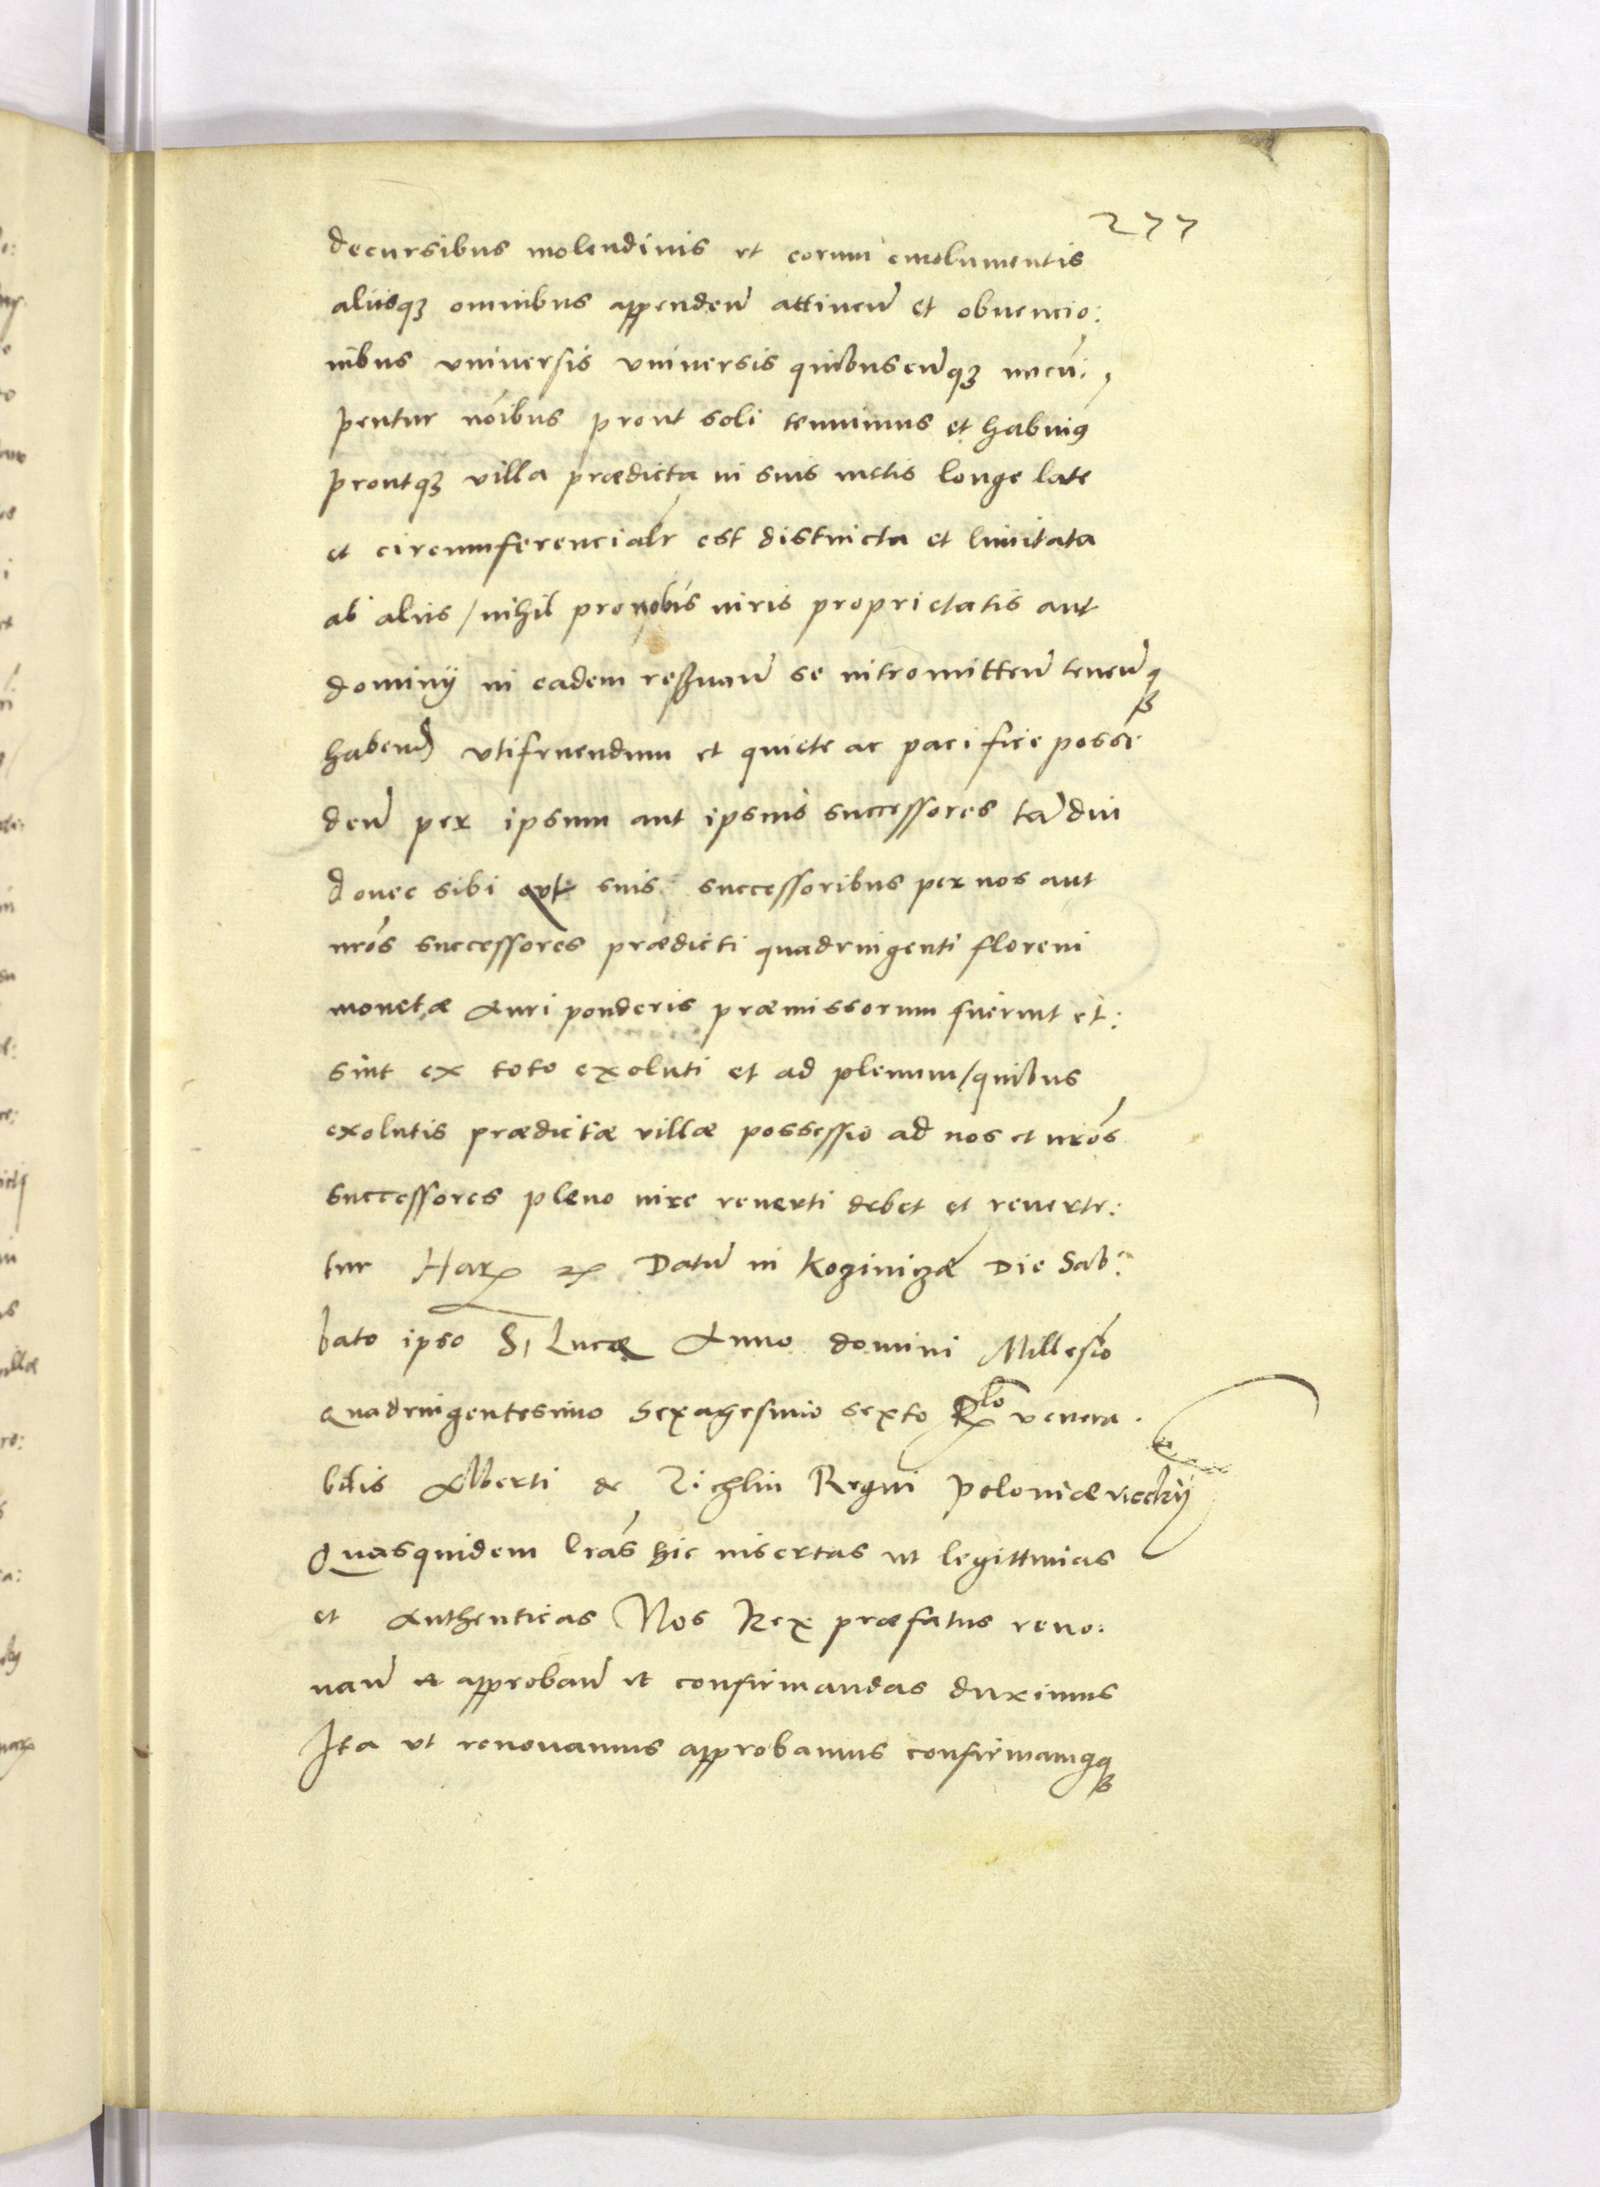 277
decursibus molendinis et eorum emolumentis
aliisqȝ omnibus appenden̄ attinen̄ et obuencio:
nibus vniuersis vniuersis quibuscun̄qȝ nuncu:
pentur nōibus prout soli tenuimus et habuim9
proutqȝ villa prædicta in suis metis longe late
et circumferencialr est distincta et limitata
ab aliis / nihil pro nobis iuris proprietatis aut
dominÿ in eadem reseruan̄ se intromitten̄ tenen̄qȝ
habend̄ vtifruendum et quiete ac pacifice posse
den̄ per ipsum aut ipsius successores tan̄diu
donec sibi aut suis successoribus per nos aut
nrōs successores prædicti quadringenti floreni
monetæ Auri ponderis præmissorum fuerint et:
sint ex toto exoluti et ad plenum / quibus
exolutis prædictæ villæ possessio ad nos et nrōs
successores pleno iure reuerti debet et reuerte:
tur Har Datum̄ in Die Sab:
bato ipso S, Lucæ Anno domini Millesīo
quadringentesimo Sexagesimo sexto Rlō venera:
bilis Alberti de Zichlin Regni Poloniæ vicecā̄rÿ
Quasquidem lrās hic insertas vt legittimas
et Authenticas Nos Rex præfatus reno:
uan̄ et approban̄ et confirmandas duximus
Ita vt renouamus approbamus confirmam9qȝ